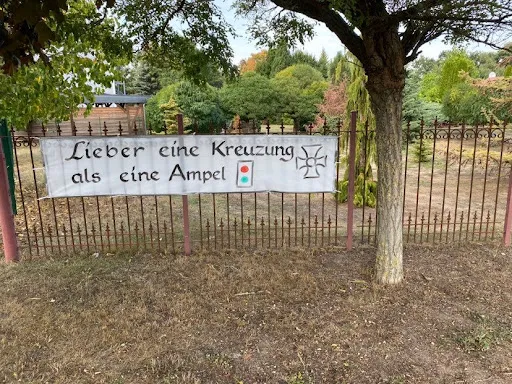 Lieber eine Kreuzung
als eine Ampel